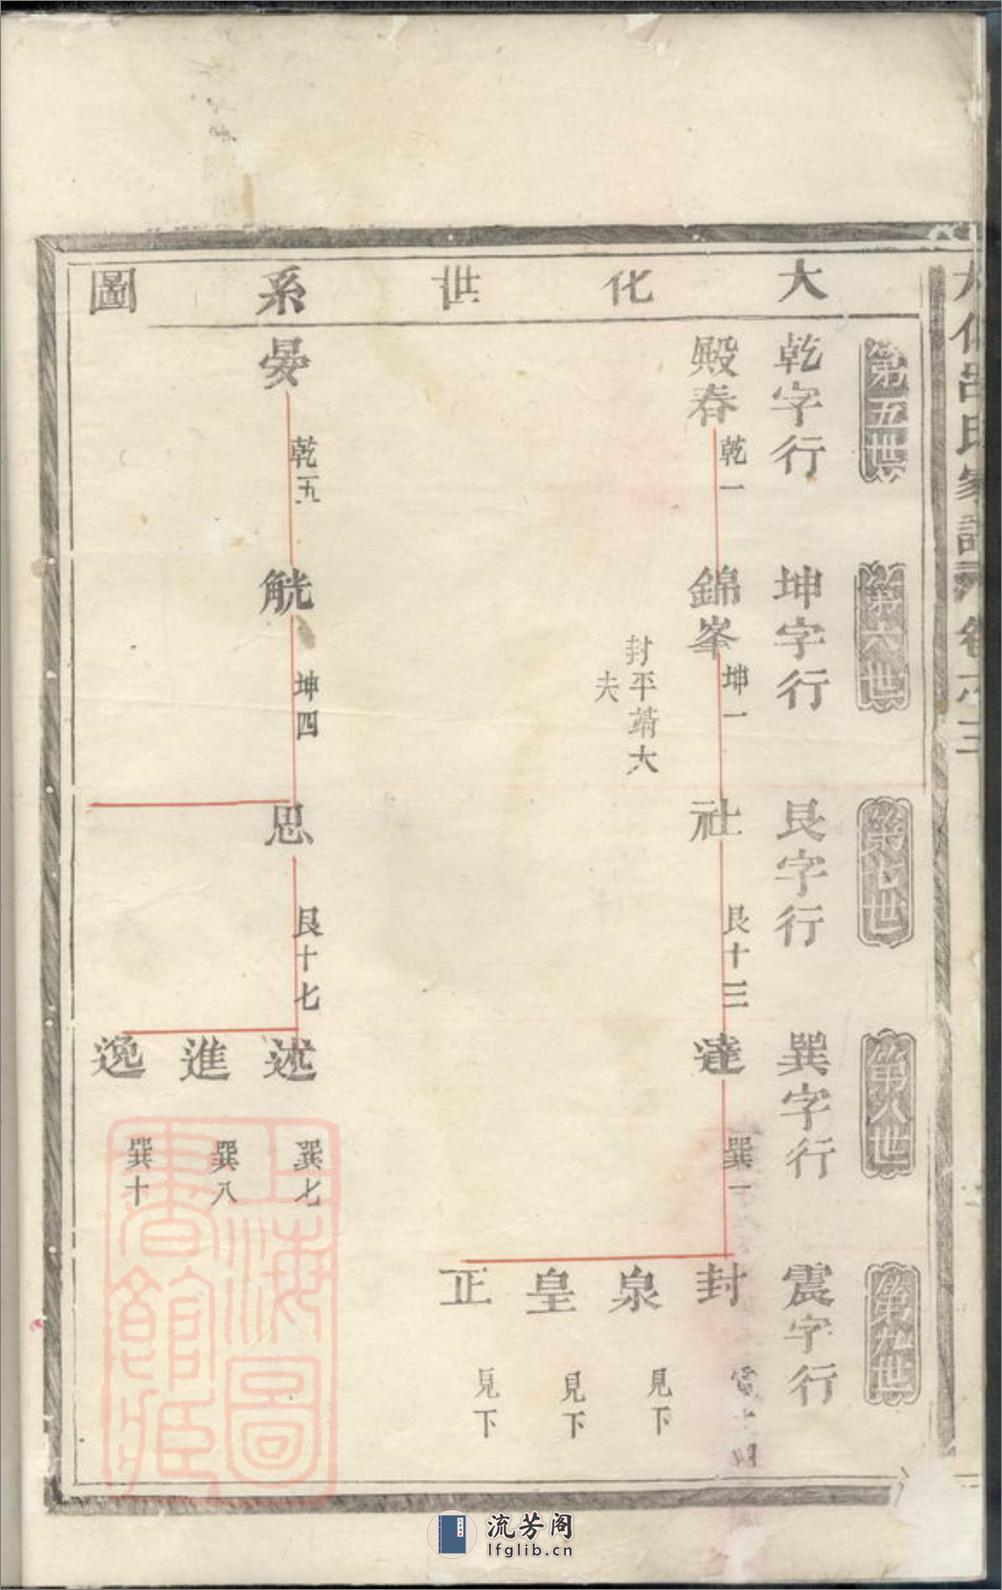 大化世系圖
第五世
乾字行
殿春
乾一
晏
乾五
第六世
坤字行
錦峯
坤一
封平靖大
夫
觥
坤四
第七世
艮字行
社
艮十三
思
艮十七
第八世
巽字行
達
巽一
述
巽七
進
巽八
逸
巽十
第九世
震字行
封
泉
見下
皇
見下
正
見下
上海圖書館藏
流芳阁
lfglib.cn